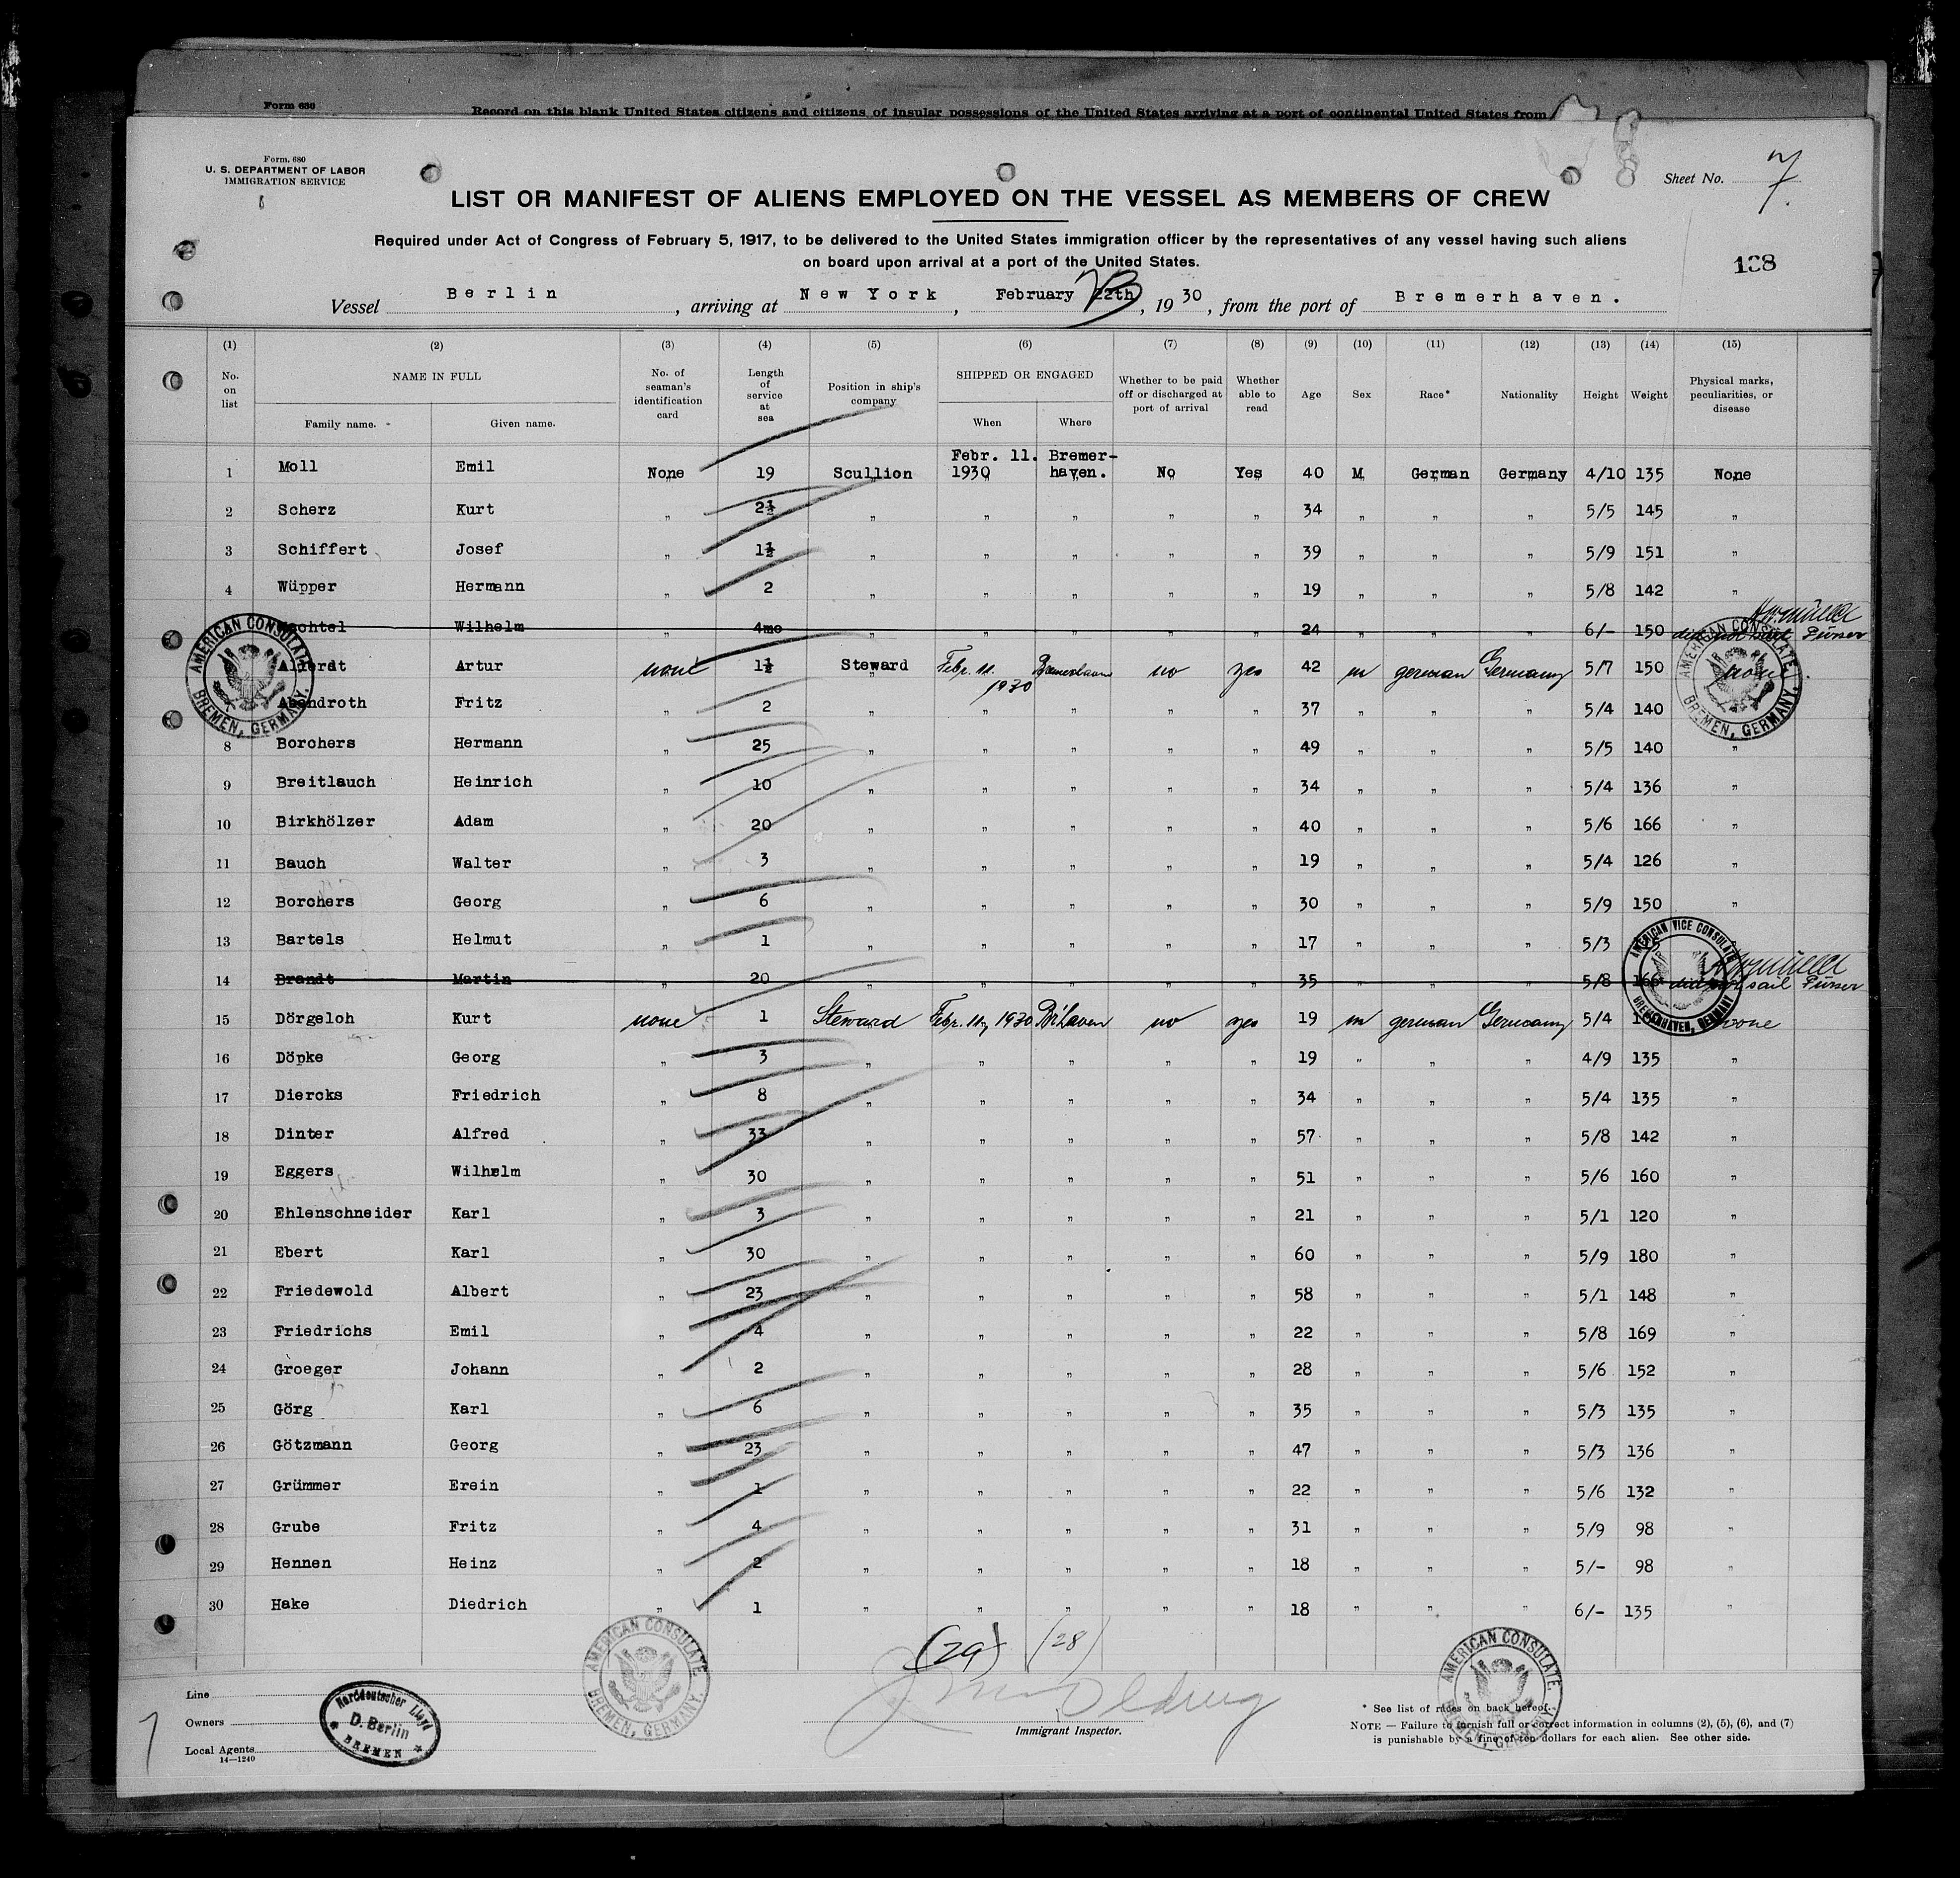 Form 680
Record on this blank United States citizens and citizens of insular possessions of the United States arriving at a port of continental United States from
Form. 680
U. S. DEPARTMENT OF LABOR
IMMIGRATION SERVICE
Sheet No. 7.
LIST OR MANIFEST OF ALIENS EMPLOYED ON THE VESSEL AS MEMBERS OF CREW
Required under Act of Congress of February 5, 1917, to be delivered to the United States immigration officer by the representatives of any vessel having such aliens
on board upon arrival at a port of the United States.
138
Vessel Berlin, arriving at New York, February 22th, 1930, from the port of Bremerhaven.
(1) (2) (3) (4) (5) (6) (7) (8) (9) (10) (11) (12) (13) (14) (15)
No. on list NAME IN FULL Family name. Given name. No. of seaman's identification card Length of service at sea Position in ship's company SHIPPED OR ENGAGED When Where Whether to be paid off or discharged at port of arrival Whether able to read Age Sex Race* Nationality Height Weight Physical marks, peculiarities, or disease
1 Moll Emil None 19 Scullion Febr. 11. 1930 Bremer-haven. No Yes 40 M German Germany 4/10 135 None
2 Scherz Kurt " 2½ " " " " " 34 " " " 5/5 145 "
3 Schiffert Josef " 1½ " " " " " 39 " " " 5/9 151 "
4 Wüpper Hermann " 2 " " " " " 19 " " " 5/8 142 "
Wilhelm " 4mo " " " " " 24 " " " 6/- 150 did not sail Purser
Artur none 1½ Steward Febr. 11. 1930 Bremerhaven no yes 42 m german Germany 5/7 150 none
Abendroth Fritz " 2 " " " " " 37 " " " 5/4 140
8 Borchers Hermann " 25 " " " " " 49 " " " 5/5 140 "
9 Breitlauch Heinrich " 10 " " " " " 34 " " " 5/4 136 "
10 Birkhölzer Adam " 20 " " " " " 40 " " " 5/6 166 "
11 Bauch Walter " 3 " " " " " 19 " " " 5/4 126 "
12 Borchers Georg " 6 " " " " " 30 " " " 5/9 150 "
13 Bartels Helmut " 1 " " " " " 17 " " " 5/3
14 Brandt Martin " 20 " " " " " 35 " " " 5/8 166 did not sail Purser
15 Dörgeloh Kurt none 1 Steward Febr. 11, 1930 B'haven no yes 19 m german Germany 5/4 none
16 Döpke Georg " 3 " " " " " 19 " " " 4/9 135 "
17 Diercks Friedrich " 8 " " " " " 34 " " " 5/4 135 "
18 Dinter Alfred " 33 " " " " " 57 " " " 5/8 142 "
19 Eggers Wilhelm " 30 " " " " " 51 " " " 5/6 160 "
20 Ehlenschneider Karl " 3 " " " " " 21 " " " 5/1 120 "
21 Ebert Karl " 30 " " " " " 60 " " " 5/9 180 "
22 Friedewold Albert " 23 " " " " " 58 " " " 5/1 148 "
23 Friedrichs Emil " 4 " " " " " 22 " " " 5/8 169 "
24 Groeger Johann " 2 " " " " " 28 " " " 5/6 152 "
25 Görg Karl " 6 " " " " " 35 " " " 5/3 135 "
26 Götzmann Georg " 23 " " " " " 47 " " " 5/3 136 "
27 Grümmer Erein " 1 " " " " " 22 " " " 5/6 132 "
28 Grube Fritz " 4 " " " " " 31 " " " 5/9 98 "
29 Hennen Heinz " 2 " " " " " 18 " " " 5/- 98 "
30 Hake Diedrich " 1 " " " " " 18 " " " 6/- 135 "
AMERICAN CONSULATE BREMEN, GERMANY.
AMERICAN CONSULATE BREMEN, GERMANY.
AMERICAN VICE CONSULATE BREMERHAVEN, GERMANY
(29) (28)
AMERICAN CONSULATE BREMEN, GERMANY.
AMERICAN CONSULATE BREMEN, GERMANY.
Line
Owners
Local Agents
14—1240
Norddeutscher Lloyd
D. Berlin
BREMEN
7
Immigrant Inspector.
* See list of races on back hereof.
NOTE — Failure to furnish full or correct information in columns (2), (5), (6), and (7)
is punishable by a fine of ten dollars for each alien. See other side.